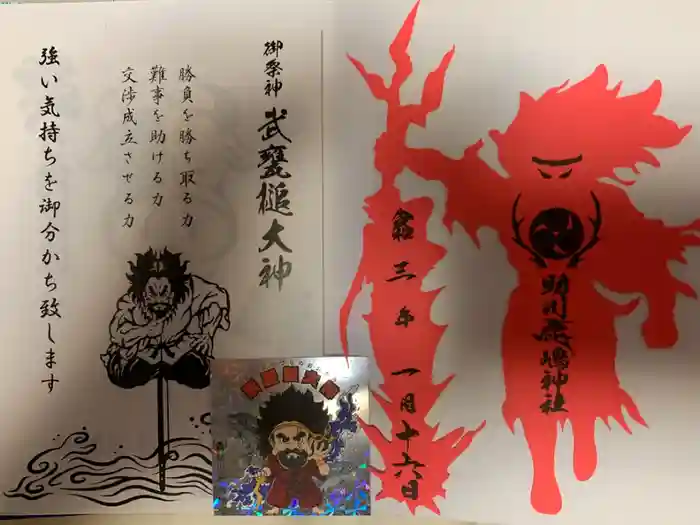 御祭神 武甕槌大神
勝負を勝ち取る力
難事を助ける力
交渉成立させる力
強い気持ちを御分かち致します
令和三年 一月十六日
助川鹿嶋神社